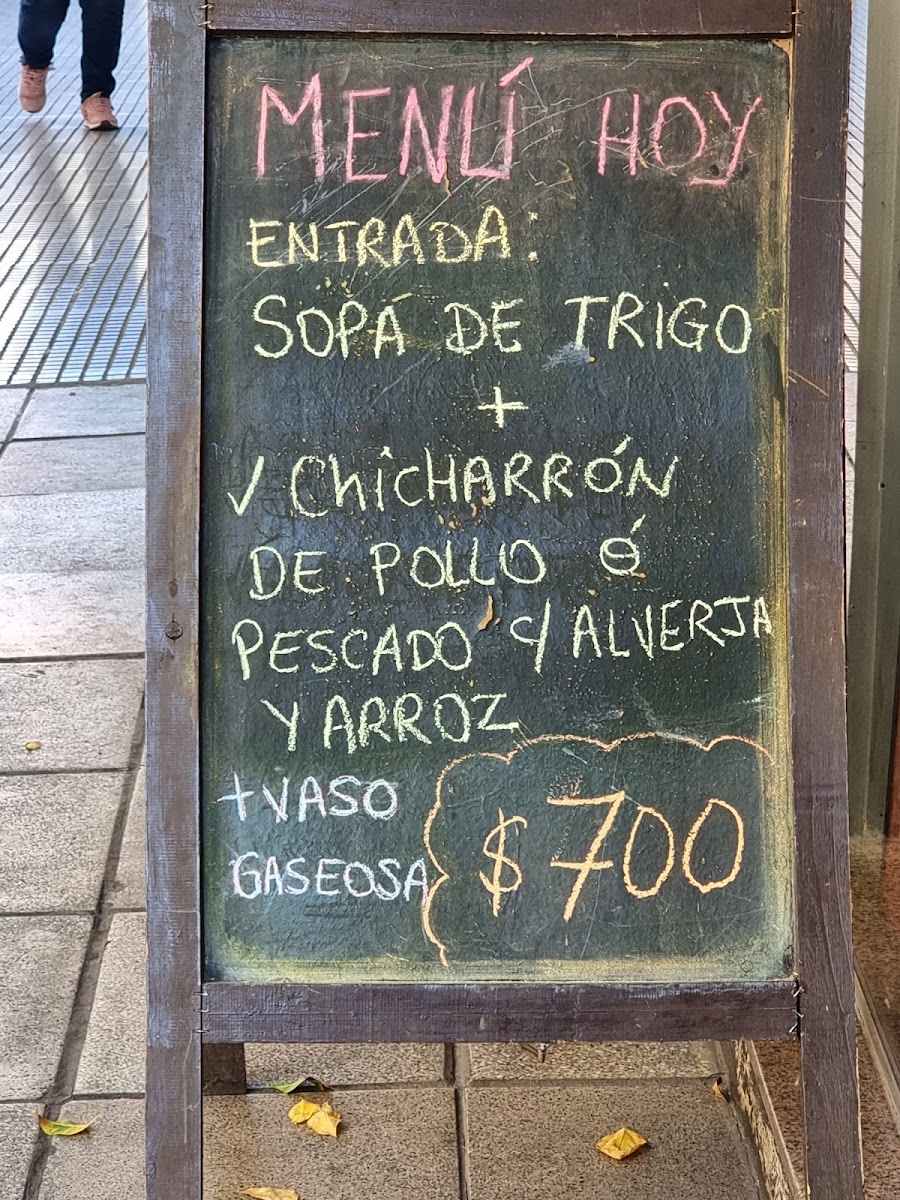 MENÚ HOY
ENTRADA:
SOPA DE TRIGO
+
✓ CHICHARRÓN
DE POLLO Ó
PESCADO C/ ALVERJA
Y ARROZ
+ VASO
GASEOSA
$700